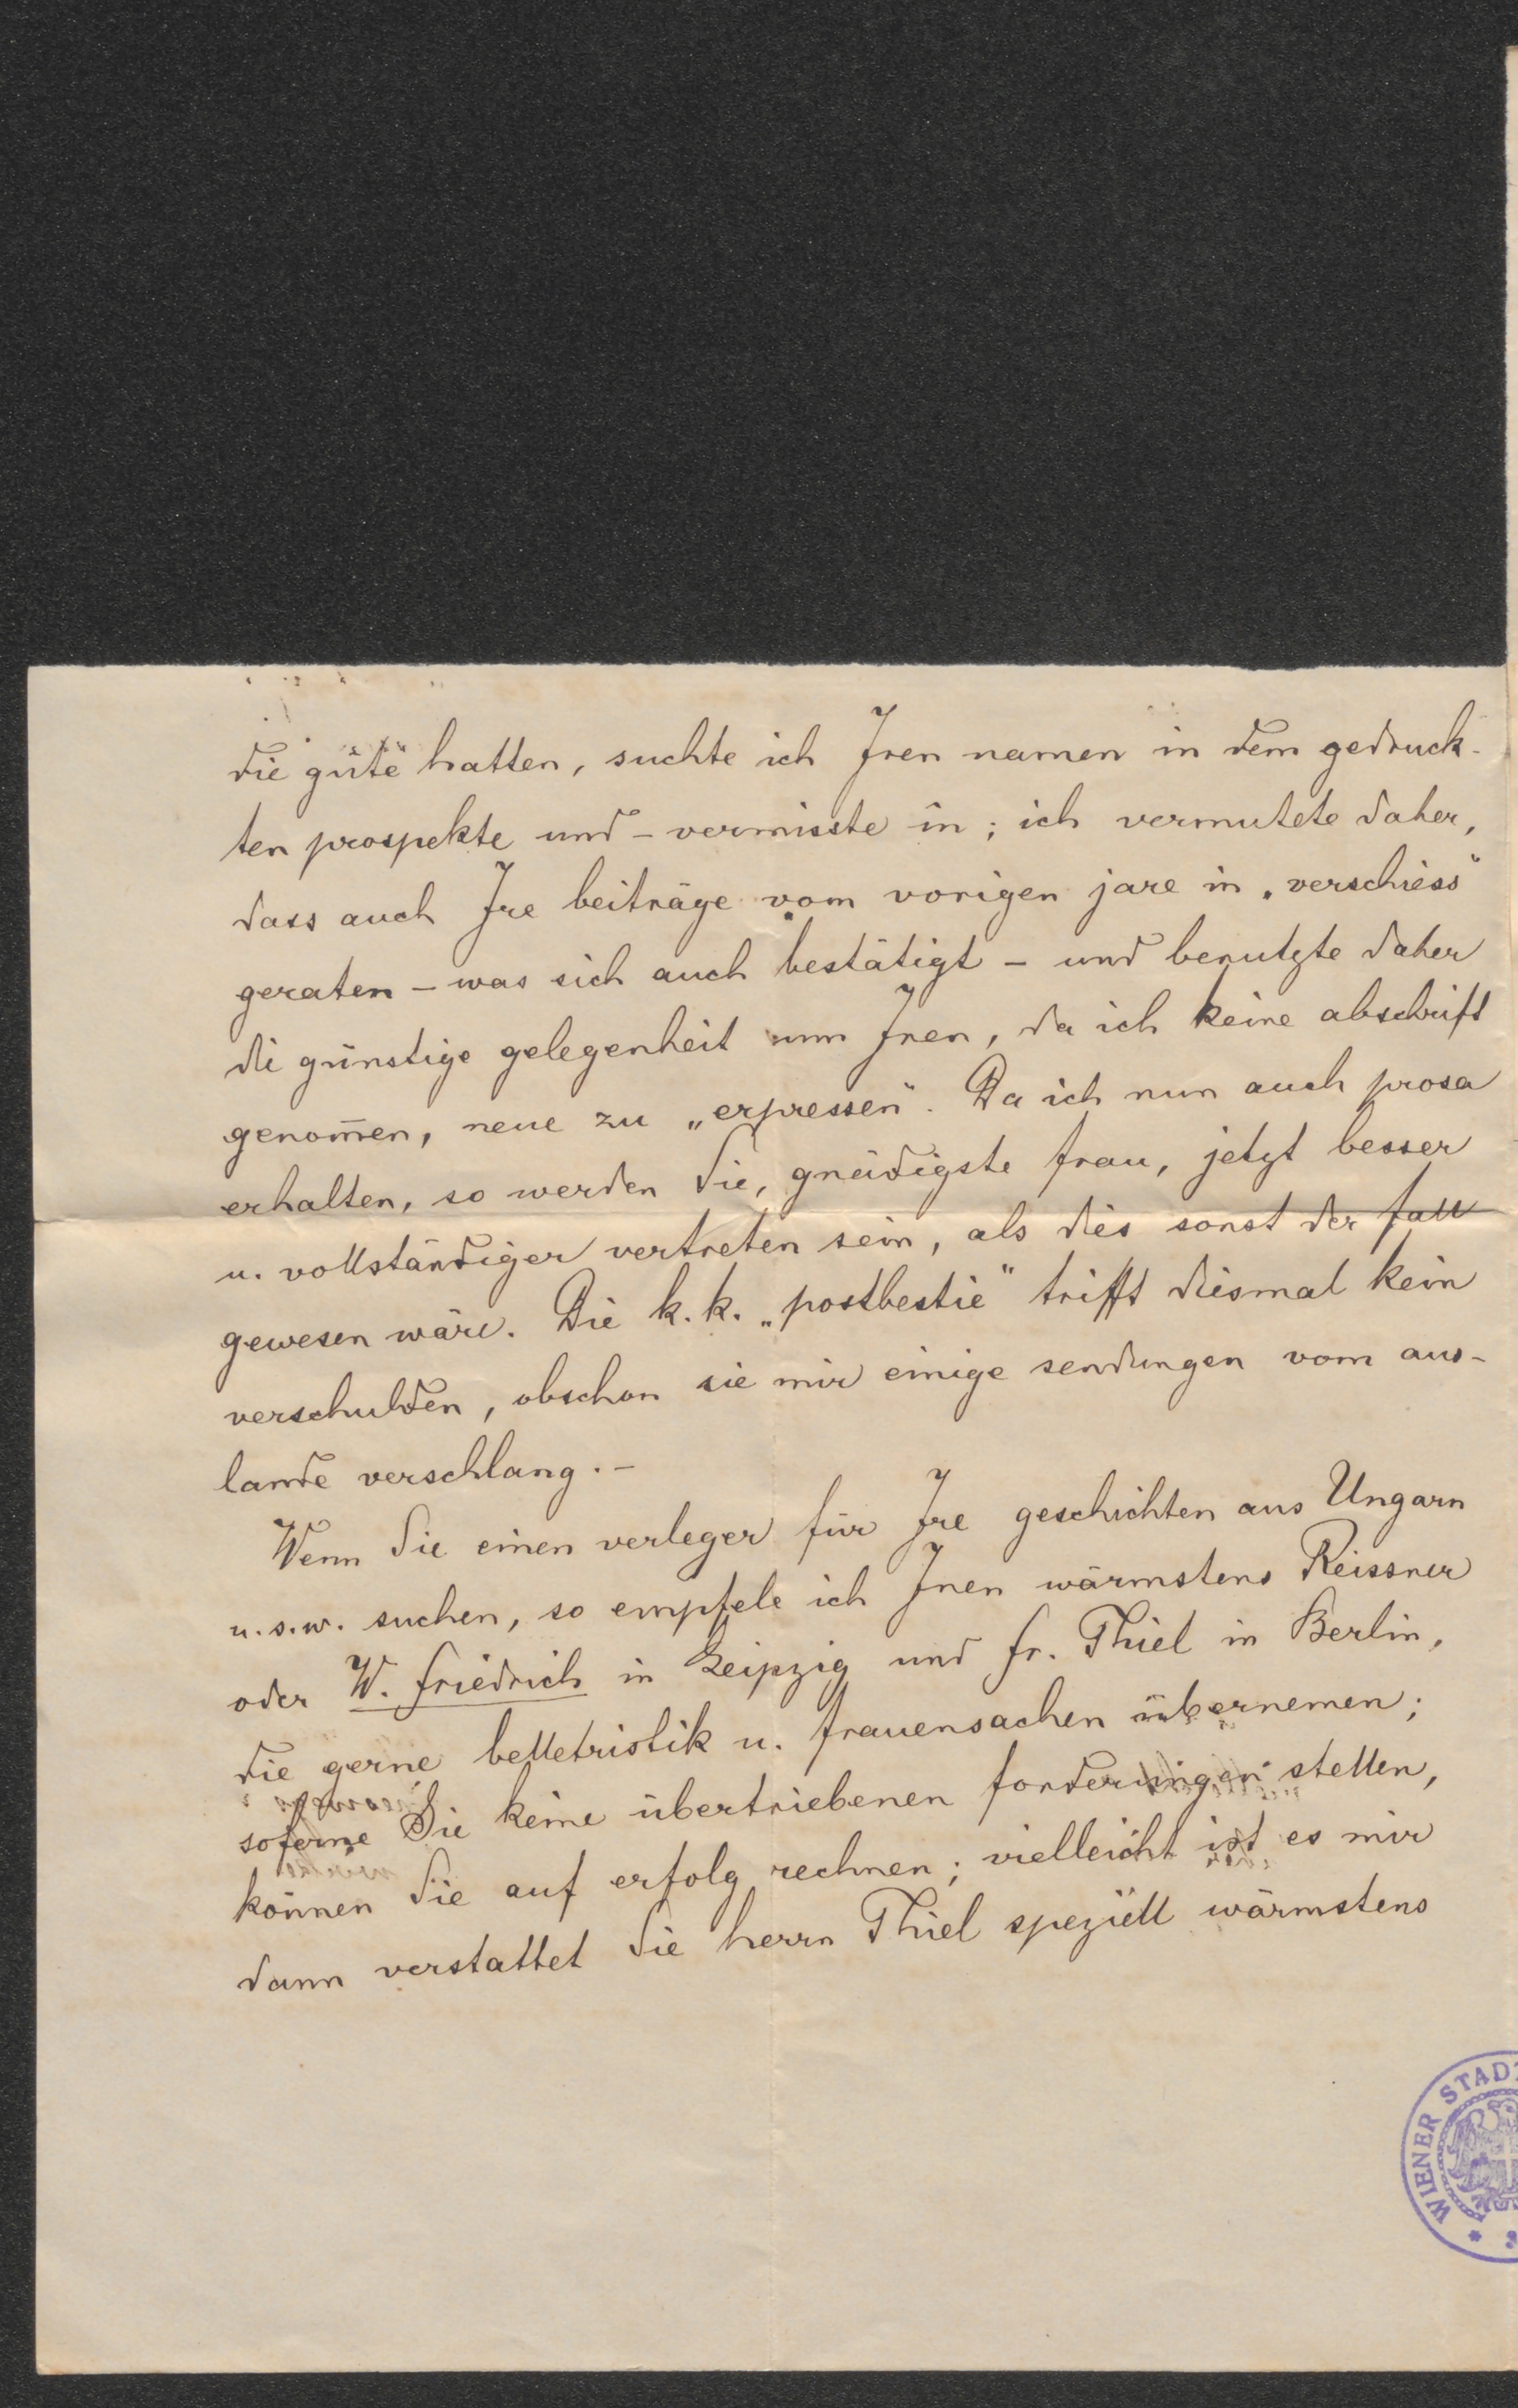 die güte hatten, suchte ich Jren namen in dem gedruck-
ten prospekte und – vermisste in; ich vermutete daher,
dass auch Jre beiträge vom vorigen jare in „verschiess"
geraten – was sich auch bestätigt – und benutzte daher
di günstige gelegenheit um Jnen, da ich keine abschrift
genom̅en, neue zu „erpressen". Da ich nun auch prosa
erhalten, so werden Sie, gnädigste frau, jetzt besser
u. vollständiger vertreten sein, als dies sonst der fall
gewesen wäre. Die k. k. „postbestie" trifft diesmal kein
verschulden, obschon sie mir einige sendungen vom aus-
lande verschlang. –
Wenn Sie einen verleger für Jre geschichten aus Ungarn
u. s. w. suchen, so empfele ich Jnen wärmstens Reissner
oder W. Friedrich in Leipzig und Fr. Thiel in Berlin,
die gerne belletristik u. frauensachen übernemen;
soferne Sie keine übertriebenen forderungen stellen,
können Sie auf erfolg rechnen; vielleicht ist es mir
dann verstattet Sie herrn Thiel speziell wärmstens
WIENER STADT